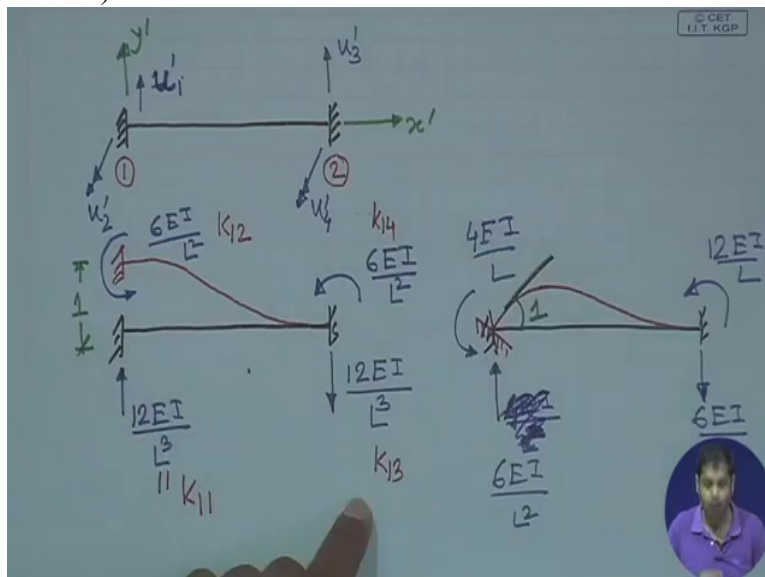 © CET
I.I.T. KGP
y'
u'1
u'3
x'
1
2
u'2
u'4
6EI/L² K12
K14
6EI/L²
1
12EI/L³
12EI/L³
|| K11
K13
4EI/L
12EI/L
1
6EI/L²
6EI